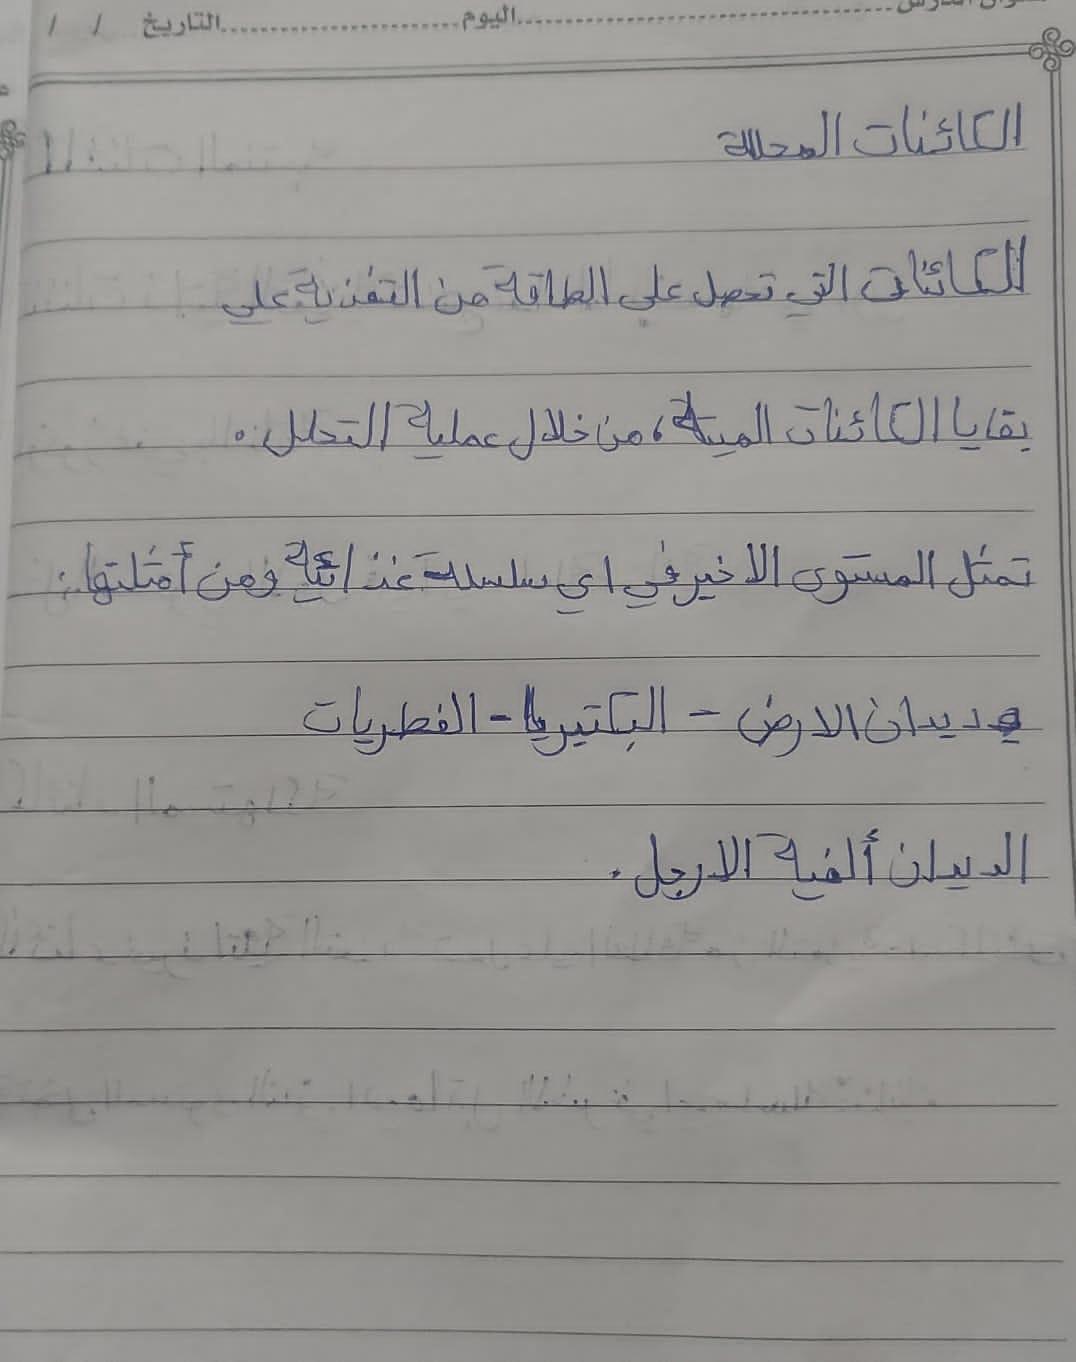 اليوم التاريخ / /
الكائنات المحللة
الكائنات التي تحصل علي الطاقة من التغذية علي
بقايا الكائنات الميتة، من خلال عملية التحلل.
تمثل المستوى الاخير في اي سلسلة غذائية ومن أمثلتها:
ديدان الارض - البكتيريا - الفطريات
الديدان ألفية الارجل.